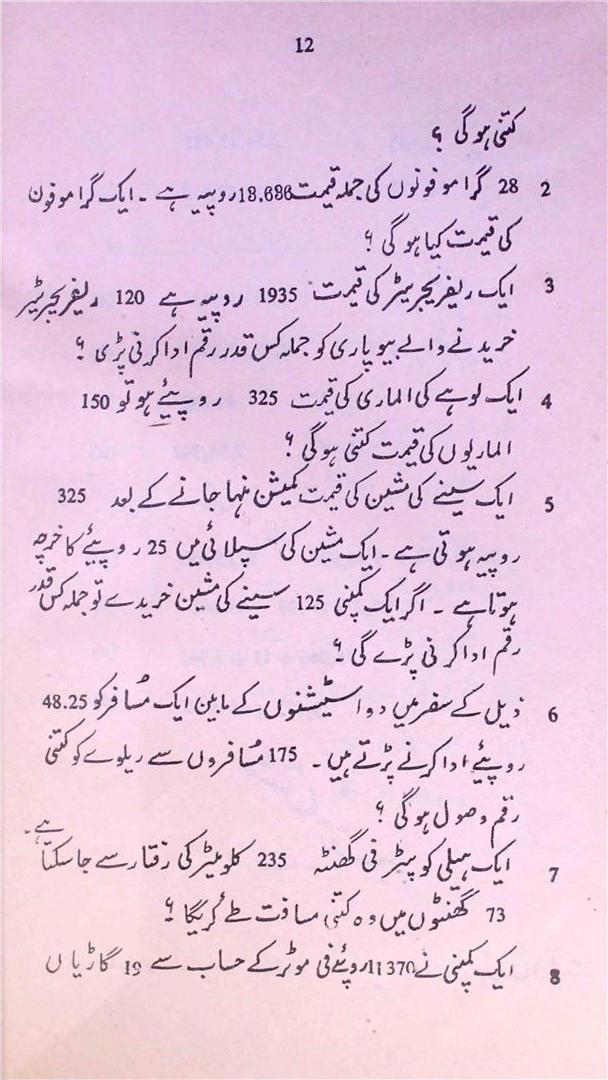 12
کتنی ہوگی ؟
2 28 گراموفونوں کی جملہ قیمت 18.686 روپیہ ہے ۔ ایک گراموفون
کی قیمت کیا ہوگی ؟
3 ایک ریفریجریٹر کی قیمت 1935 روپیہ ہے 120 ریفریجریٹر
خریدنے والے بیوپاری کو جملہ کس قدر رقم ادا کرنی پڑی ؟
4 ایک لوہے کی الماری کی قیمت 325 روپیئے ہو تو 150
الماریوں کی قیمت کتنی ہوگی ؟
5 ایک سینے کی مشین کی قیمت کمیشن منہا جانے کے بعد 325
روپیہ ہوتی ہے ۔ ایک مشین کی سپلائی میں 25 روپیئے کا خرچہ
ہوتا ہے ۔ اگر ایک کمپنی 125 سینے کی مشین خریدے تو جملہ کس قدر
رقم ادا کرنی پڑے گی ؟
6 ذیل کے سفر میں دو اسٹیشنوں کے مابین ایک مُسافر کو 48.25
روپیئے ادا کرنے پڑتے ہیں ۔ 175 مُسافروں سے ریلوے کو کتنی
رقم وصول ہوگی ؟
7 ایک ہیلی کوپیٹر فی گھنٹہ 235 کلومیٹر کی رفتار سے جا سکتا ہے ۔
73 گھنٹوں میں وہ کتنی مسافت طے کریگا ؟
8 ایک کمپنی نے 11370 روپئے فی موٹر کے حساب سے 19 گاڑیاں